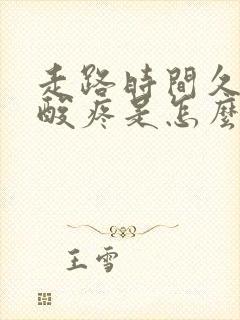 走路時間久
酸疼是怎麼
王雪